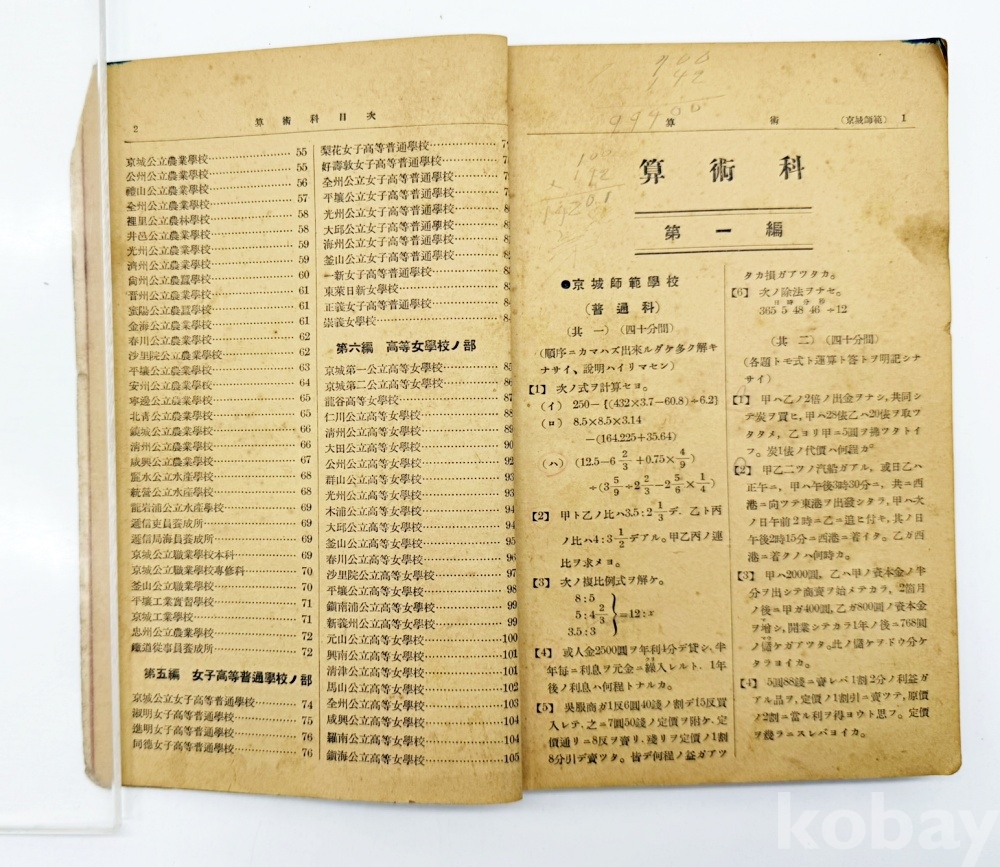 2
算術科目次
京城公立農業學校 55
公州公立農業學校 55
禮山公立農業學校 56
全州公立農業學校 57
裡里公立農林學校 58
井邑公立農業學校 58
光州公立農業學校 59
濟州公立農業學校 59
尙州公立農蠶學校 60
晋州公立農業學校 61
密陽公立農蠶學校 61
金海公立農業學校 61
春川公立農業學校 62
沙里院公立農業學校 62
平壤公立農業學校 63
安州公立農業學校 64
寧邊公立農業學校 65
北靑公立農業學校 65
鏡城公立農業學校 66
淸州公立農業學校 66
咸興公立農業學校 67
麗水公立水產學校 68
統營公立水產學校 68
龍岩浦公立水產學校 69
遞信吏員養成所 69
遞信局海員養成所 69
京城公立職業學校本科
京城公立職業學校專修科 70
釜山公立職業學校 70
平壤工業實習學校 71
京城工業學校 71
忠州公立農業學校 72
鐵道從事員養成所 72
第五編 女子高等普通學校ノ部
京城公立女子高等普通學校 74
淑明女子高等普通學校 75
進明女子高等普通學校 76
同德女子高等普通學校 76
梨花女子高等普通學校
好壽敦女子高等普通學校
全州公立女子高等普通學校
平壤公立女子高等普通學校
光州公立女子高等普通學校
大邱公立女子高等普通學校
海州公立女子高等普通學校
釜山公立女子高等普通學校
一新女子高等普通學校
東萊日新女學校
正義女子高等普通學校
崇義女學校
第六編 高等女學校ノ部
京城第一公立高等女學校
京城第二公立高等女學校 86
龍谷高等女學校 87
仁川公立高等女學校 88
淸州公立高等女學校 89
大田公立高等女學校 90
公州公立高等女學校 92
群山公立高等女學校 93
光州公立高等女學校 93
木浦公立高等女學校 94
大邱公立高等女學校 94
釜山公立高等女學校 95
春川公立高等女學校 96
沙里院公立高等女學校 97
平壤公立高等女學校 98
鎭南浦公立高等女學校 99
新義州公立高等女學校 99
元山公立高等女學校 100
興南公立高等女學校 101
淸津公立高等女學校 101
馬山公立高等女學校 102
全州公立高等女學校 103
咸興公立高等女學校 104
羅南公立高等女學校 104
鎭海公立高等女學校 105
算術
(京城師範) 1
算術科
第一編
●京城師範學校
(普通科)
(其一) (四十分間)
(順序ニカマハズ出來ルダケ多ク解キ
ナサイ、說明ハイリマセン)
【1】 次ノ式ヲ計算セヨ。
(イ) 250−{(432×3.7−60.8)÷6.2}
(ロ) 8.5×8.5×3.14
−(164.225+35.64)
(ハ) (12.5−6 2/3 +0.75× 4/9)
÷(3 5/9 ÷2 2/3 −2 5/6 × 1/4)
【2】 甲ト乙ノ比ハ3.5 : 2 1/3 デ. 乙ト丙
ノ比ハ4 : 3 1/2 デアル。甲乙丙ノ連
比ヲ求メヨ。
【3】 次ノ複比例式ヲ解ケ。
8 : 5
5 : 4 2/3
3.5 : 3
} =12 : x
【4】 或人金2500圓ヲ年利4分デ貸シ、半
年每ニ利息ヲ元金ニ繰入レルト、1年
後ノ利息ハ何程トナルカ。
【5】 吳服商ガ1反6圓40錢ノ割デ15反買
入レテ、之ニ7圓50錢ノ定價ヲ附ケ、定
價通リニ8反ヲ賣リ、殘リヲ定價ノ1割
8分引デ賣ツタ。皆デ何程ノ益ガアツ
タカ損ガアツタカ。
【6】 次ノ除法ヲナセ。
日 時 分 秒
365 5 48 46 ÷12
(其二) (四十分間)
(各題トモ式ト運算ト答トヲ明記シナ
サイ)
【1】 甲ハ乙ノ2倍ノ出金ヲナシ、共同シ
テ炭ヲ買ヒ、甲ハ28俵乙ハ20俵ヲ取ツ
タタメ、乙ヨリ甲ニ5圓ヲ拂ツタトイ
フ。炭1俵ノ代價ハ何程カ。
【2】 甲乙二ツノ汽船ガアル、或日乙ハ
正午ニ、甲ハ午後3時30分ニ、共ニ西
港ニ向ツテ東港ヲ出發シタラ、甲ハ次
ノ日午前2時ニ乙ニ追ヒ付キ、其ノ日
午後2時15分ニ西港ニ着イタ。乙ガ西
港ニ着タノハ何時カ。
【3】 甲ハ2000圓、乙ハ甲ノ資本金ノ半
分ヲ出シテ商賣ヲ始メテカラ、2箇月
ノ後ニ甲ガ400圓、乙ガ800圓ノ資本金
ヲ增シ、開業シテカラ1年ノ後ニ768圓
ノ儲ケガアツタ。此ノ儲ケヲドウ分ケ
タラヨイカ。
【4】 5圓88錢ニ賣レバ1割2分ノ利益ガ
アル品ヲ、定價ノ1割引ニ賣ツテ、原價
ノ2割ニ當ル利ヲ得ヨウト思フ。定價
ヲ幾ラニスレバヨイカ。
kobay